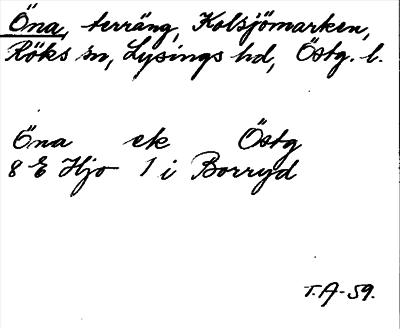 Öna, terräng, Kolsjömarken,
Röks sn, Lysings hd, Östg. l.
Öna ek Östg
8 E Hjo 1 i Borryd
T.A-59.